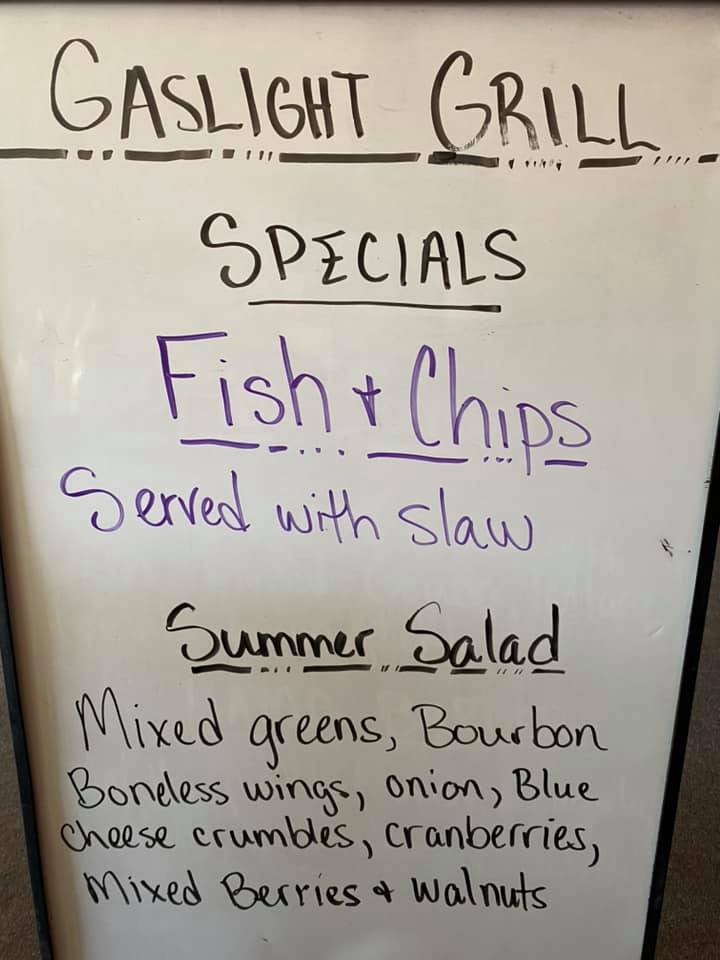 GASLIGHT GRILL
SPECIALS
Fish + Chips
Served with slaw
Summer Salad
Mixed greens, Bourbon
Boneless wings, onion, Blue
cheese crumbles, cranberries,
Mixed Berries + walnuts